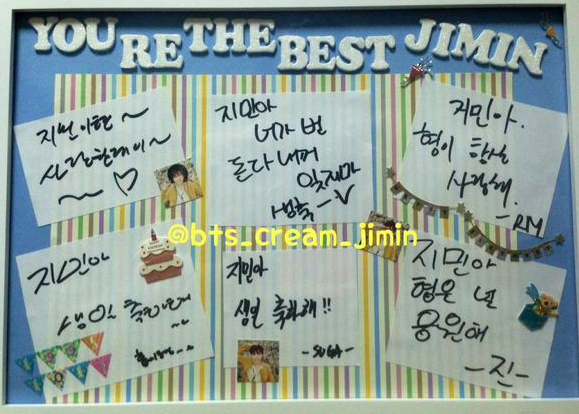 YOU RE THE BEST JIMIN
지민이형~
사랑한데이~
~♡
지민아
너가 번
돈 다 내꺼
잊지마
생축 -V
지민아.
형이 항상
사랑해.
-RM
@bts_cream_jimin
지민아
생일
지민아
생일 축하해!!
-SUGA-
지민아
형은 널
응원해
-진-